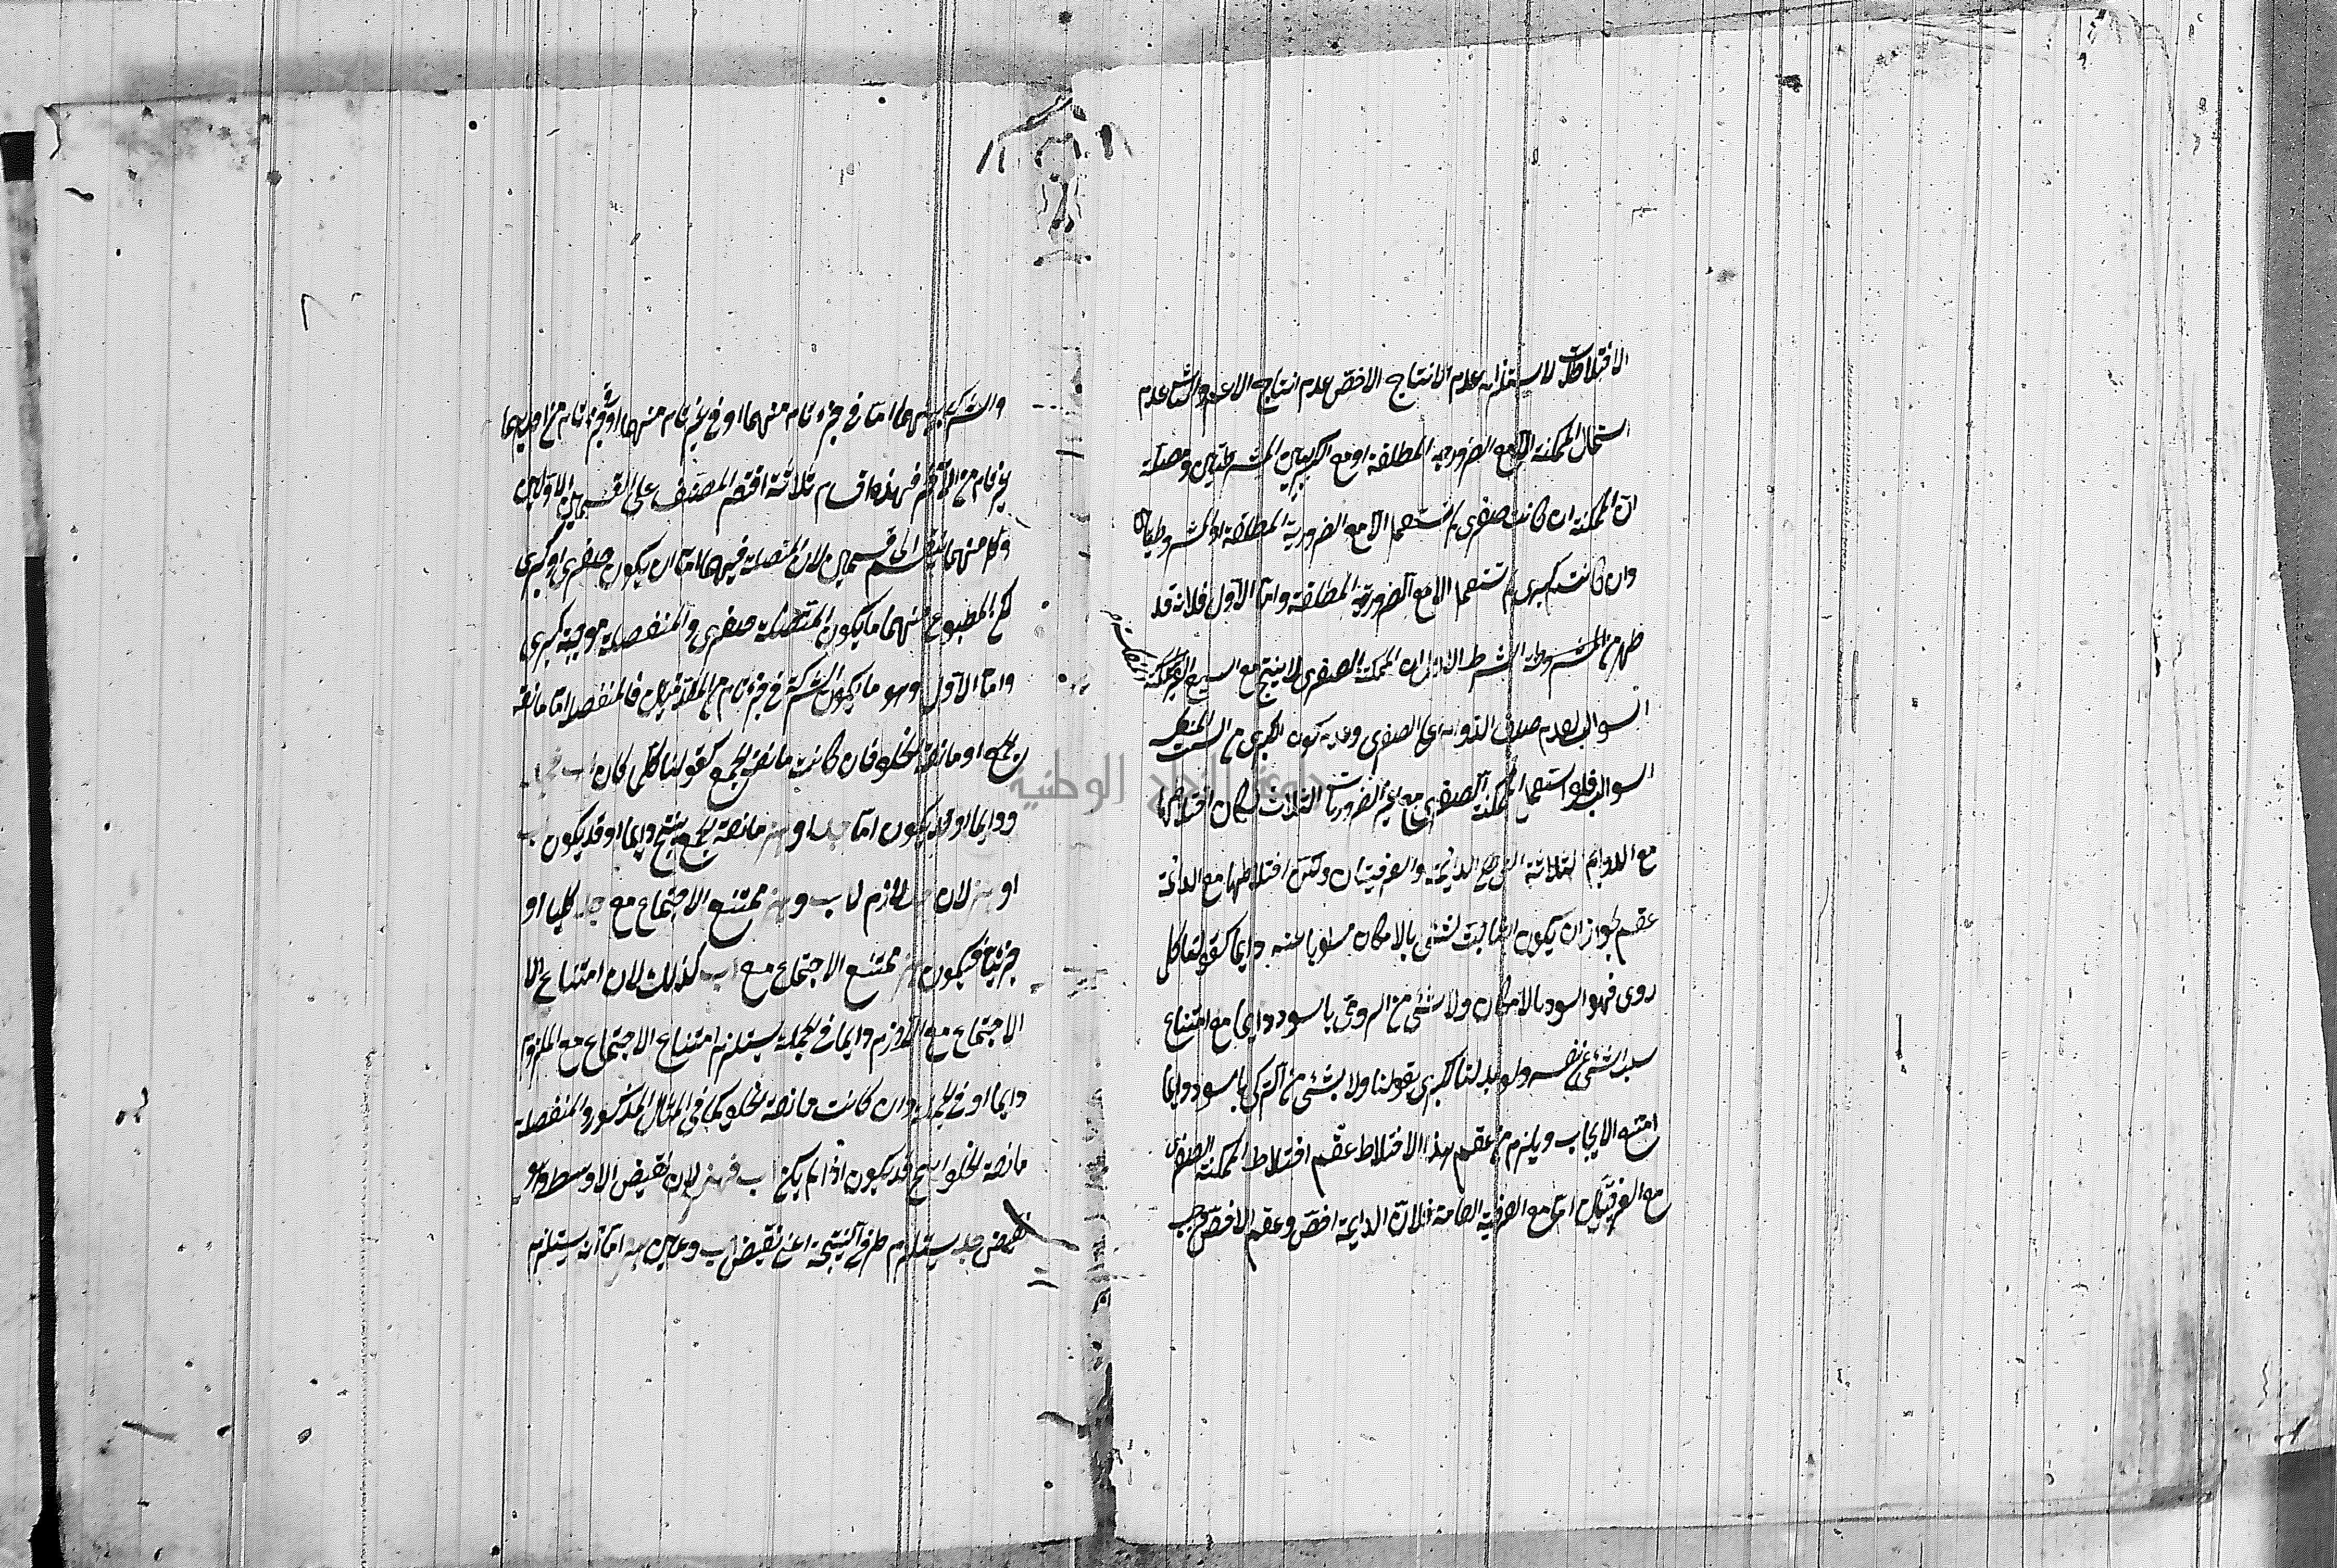 الاختلاطات لاستلزام عدم الانتاج الاخص عدم انتاج الاعم والشرط الثاني عدم
استعمال الممكنة الا مع الضرورية المطلقة او مع الكبريين المشروطتين ومحصله
ان الممكنة ان كانت صغرى لم تستعمل الا مع الضرورية المطلقة او المشروطتين
وان كانت كبرى لم تستعمل الا مع الضرورية المطلقة واما الاول فلانه قد
ظهر من الشرط الاول ان الممكنة الصغرى لا ينتج مع السبع الغير المنعكسة
السوالب لعدم صدق الدوام على الصغرى وعدم كون الكبرى من الست المنعكسة
السوالب فلو استعمل الممكنة الصغرى مع غير الضروريات الثلاث لكان اختلاطها
مع الدوايم الثلاثة التي هي الدايمة والعرفيتان ولكن اختلاطها مع الدائمة
عقيم لجواز ان يكون الثابت لشئ بالامكان مسلوبا عنه دايما كقولنا كل
رومى فهو اسود بالامكان ولا شئ من الرومى باسود دايما مع امتناع
سلب الشئ عن نفسه ولو بدلنا الكبرى بقولنا ولا شئ من التركى باسود دايما
امتنع الايجاب ويلزم من عقم هذا الاختلاط عقم اختلاط الممكنة الصغرى
مع العرفيتين اما مع العرفية العامة فلان الدايمة اخص وعقم الاخص يوجب
والشركة بينهما اما في جزء تام منهما او في غير تام منهما او في جزء تام من احديهما
غير تام من الاخر فهذه اقسام ثلاثة اقتصر المصنف على القسمين الاولين
وكل منهما ينقسم الى قسمين لان المتصلة فيهما اما ان يكون صغرى او كبرى
لكن المطبوع منهما ما يكون المتصلة صغرى والمنفصلة موجبة كبرى
واما الاول وهو ما يكون الشركة في جزء تام من المقدمتين فالمنفصلة اما مانعة
الجمع او مانعة الخلو فان كانت مانعة الجمع كقولنا كلما كان اب فجد
ودايما او قد يكون اما جد او هز مانعة الجمع ينتج دايما او قد يكون اب
او هز لان جد لازم لاب وهز ممتنع الاجتماع مع جد كليا او
جزئيا فيكون هز ممتنع الاجتماع مع اب كذلك لان امتناع الا
الاجتماع مع اللازم دايما او في الجملة يستلزم امتناع الاجتماع مع الملزوم
دايما او في الجملة وان كانت مانعة الخلو كما في المثال المذكور والمنفصلة
مانعة الخلو ينتج قد يكون اذا لم يكن اب فهز لان نقيض الاوسط وهو
نقيض جد يستلزم طرفي النتيجة اعني نقيض اب وعين هز اما انه يستلزم